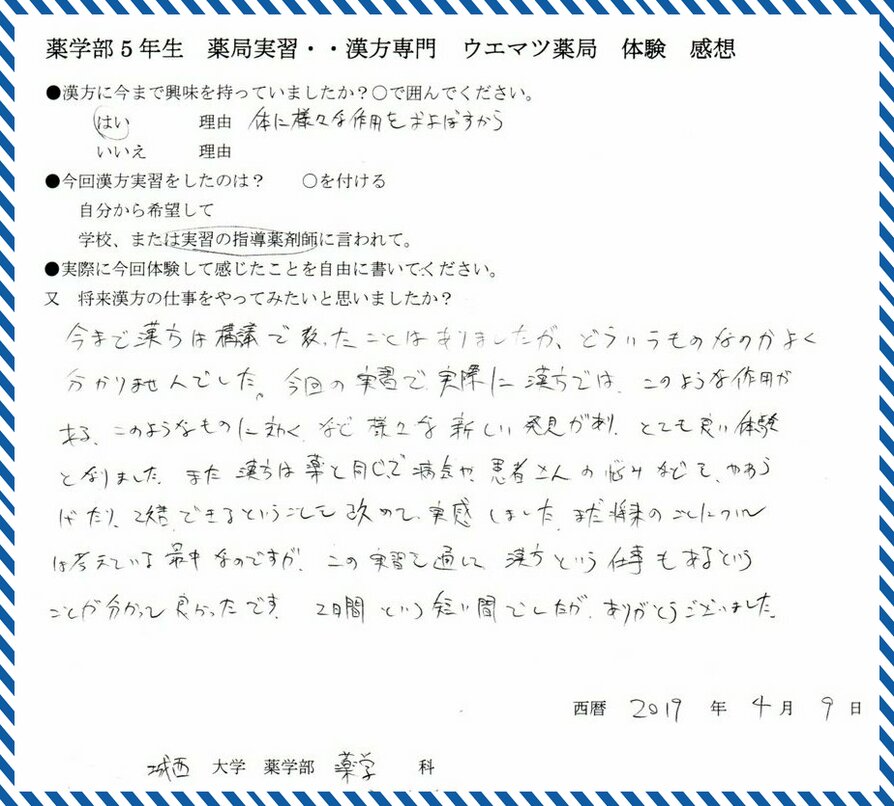 薬学部5年生　薬局実習・・漢方専門　ウエマツ薬局　体験　感想
●漢方に今まで興味を持っていましたか?○で囲んでください。
はい　理由　体に様々な作用をおよぼすから
いいえ　理由
●今回漢方実習をしたのは?　○を付ける
自分から希望して
学校、または実習の指導薬剤師に言われて。
●実際に今回体験して感じたことを自由に書いてください。
又　将来漢方の仕事をやってみたいと思いましたか?
今まで漢方は講議で教ったことはありましたが、どういうものなのかよく
分かりませんでした。今回の実習で実際に漢方では、このような作用が
ある、このようなものに効く、など様々な新しい発見があり、とても良い体験
となりました。また漢方は薬と同じで病気や、患者さんの悩みなどを、やわら
げたり、できるということを改めて、実感しました。まだ将来のことについて
は考えている最中なのですが、この実習を通して漢方という仕事もあるという
ことが分かって良かったです。2日間という短い間でしたが、ありがとうございました。
西暦　2019　年　4月　9日
城西　大学　薬学部　薬学　科